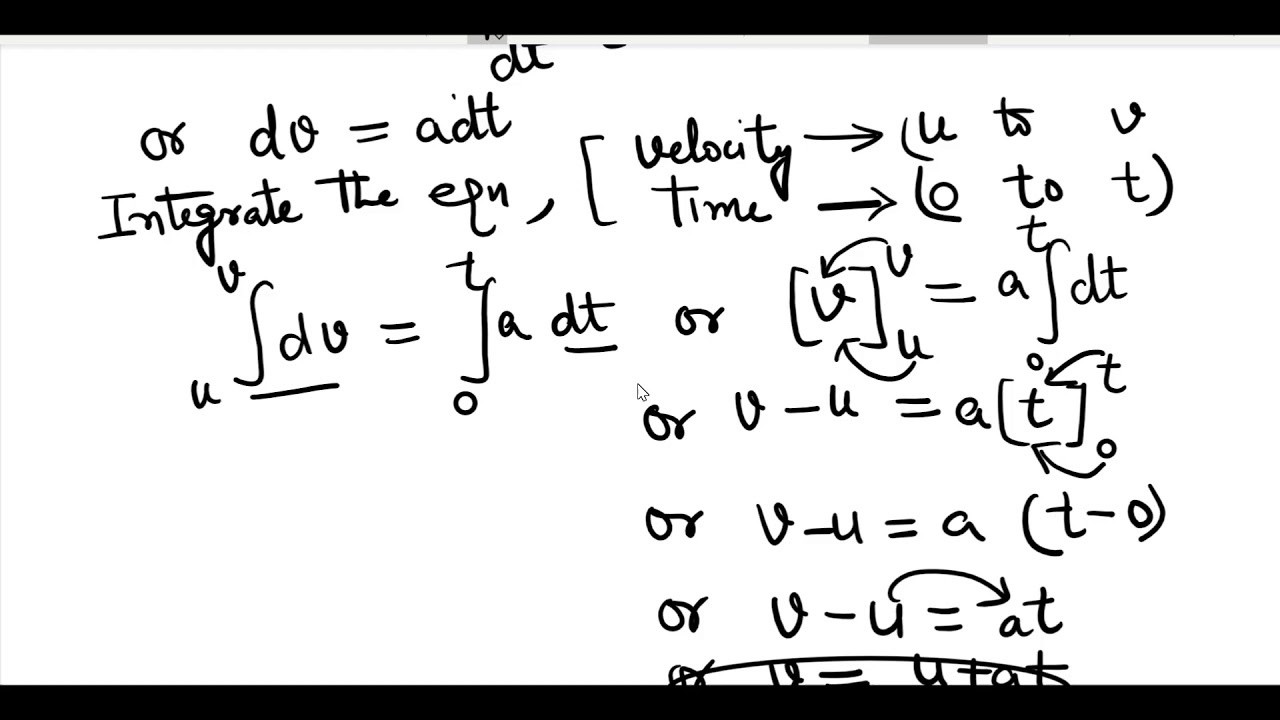 dt
or dv = adt [ velocity → (u to v
Integrate the eqn, [ Time → (0 to t)
∫_u^v dv = ∫_0^t a dt or [v]_u^v = a ∫_0^t dt
or v - u = a [t]_0^t
or v - u = a (t - 0)
or v - u = at
or v = u + at